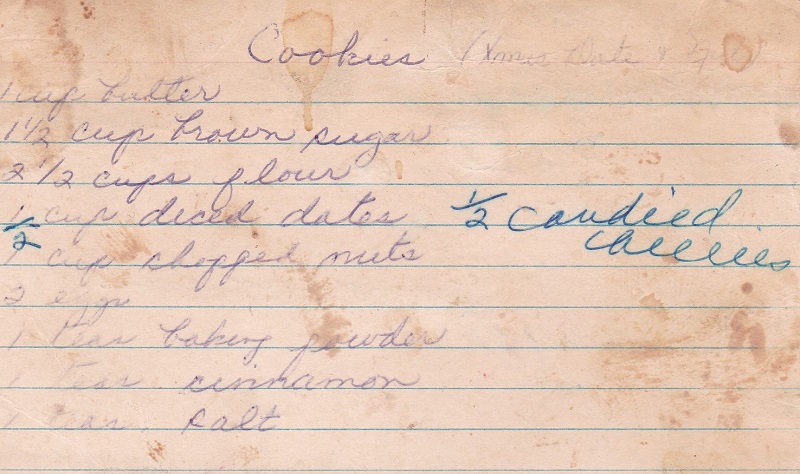 Cookies (Xmas Date
1 cup butter
1 1/2 cup brown sugar
2 1/2 cups flour
1 cup diced dates 1/2 candied
1/2 cherries
1 cup chopped nuts
2 eggs
1 teas baking powder
1 teas cinnamon
1 teas salt